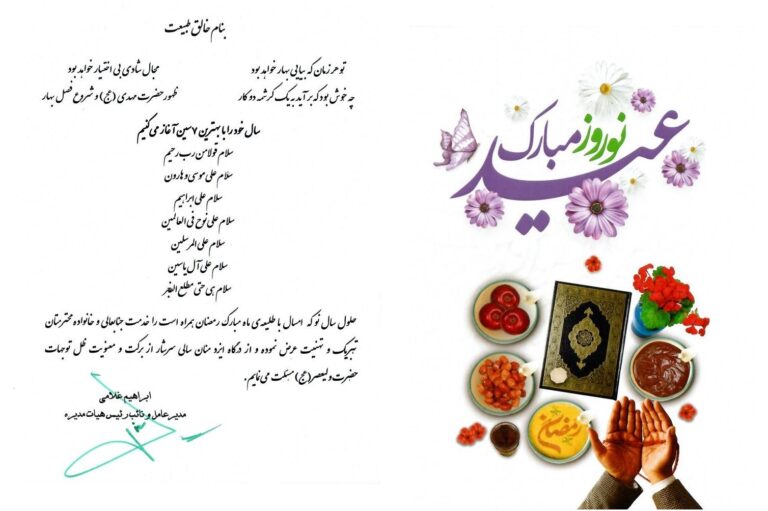 بنام خالق طبیعت
تو هر زمان که بیایی بهار خواهد بود
مجال شادی بی اختیار خواهد بود
چه خوش بود که برآید به یک کرشمه دو کار
ظهور حضرت مهدی (عج) و شروع فصل بهار
سال خود را با بهترین ۷ سین آغاز می کنیم
سلام قولا من رب رحیم
سلام علی موسی و هارون
سلام علی ابراهیم
سلام علی نوح فی العالمین
سلام علی المرسلین
سلام علی آل یاسین
سلام هی حتی مطلع الفجر
حلول سال نو که امسال با طلیعه‌ی ماه مبارک رمضان همراه است را خدمت جنابعالی و خانواده محترمتان
تبریک و تهنیت عرض نموده و از درگاه ایزد منان سالی سرشار از برکت و معنویت ظل توجهات
حضرت ولیعصر (عج) مسئلت می نمایم.
ابراهیم غلامی
مدیر عامل و نائب رئیس هیات مدیره
عید نوروز مبارک
رمضان